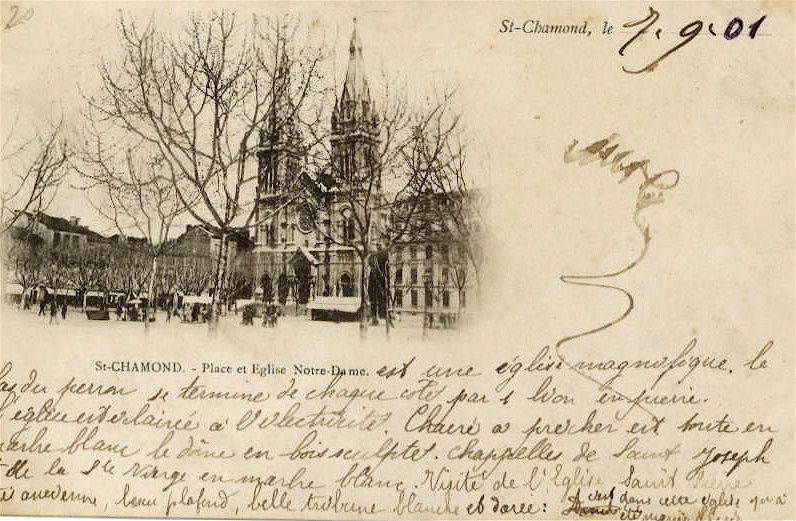 20
St-Chamond, le 7.9.01
St-CHAMOND. - Place et Eglise Notre-Dame. est une église magnifique. le
bas du perron se termine de chaque côté par 1 lion en pierre.
l'église est erlairée à l'électricité. Chaere a precher est toute en
marbre blanc le dôme en bois sculpté. chappelles de Saint Joseph
de la Ste Vierge en marbre blanc. Visité de l'Eglise Saint Pierre
ancienne, beau plafond, belle tribune blanche et dorée:
c'est dans cette église qu'a
été